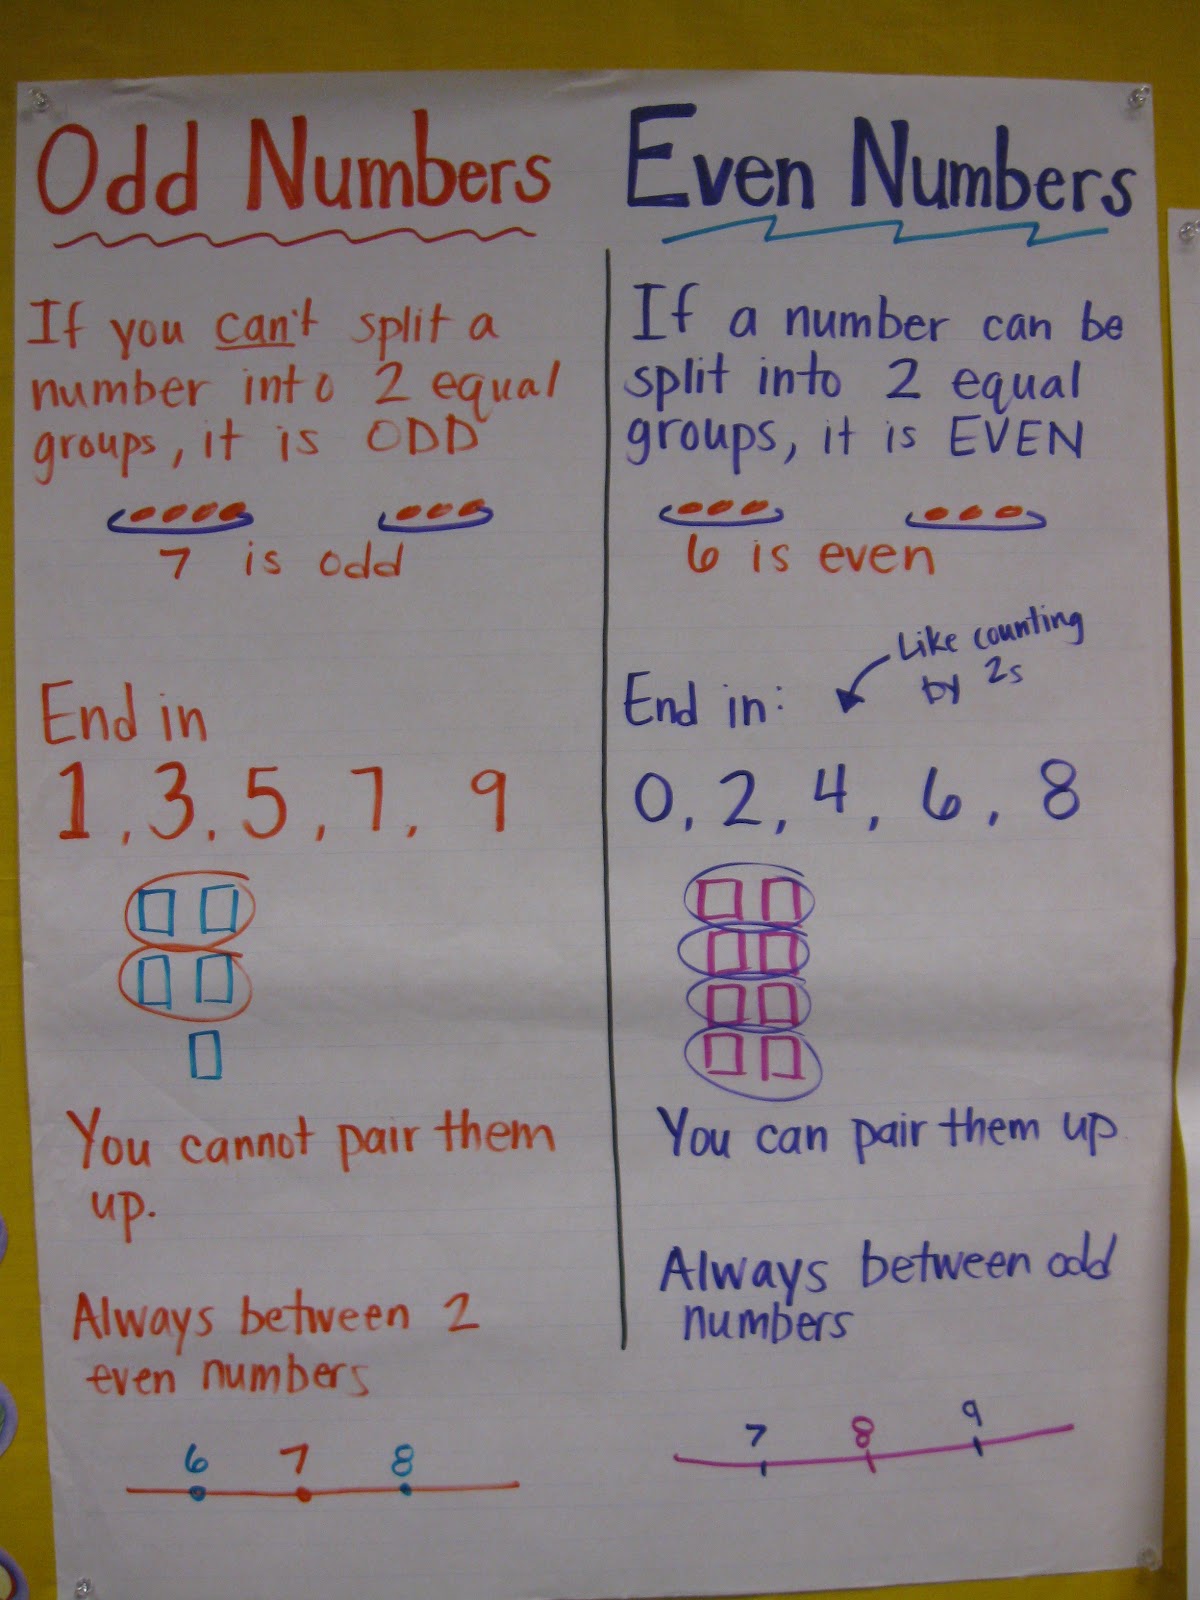 Odd Numbers
If you can't split a
number into 2 equal
groups, it is ODD
7 is odd
End in
1, 3, 5, 7, 9
You cannot pair them
up.
Always between 2
even numbers
6 7 8
Even Numbers
If a number can be
split into 2 equal
groups, it is EVEN
6 is even
Like counting
by 2s
End in:
0, 2, 4, 6, 8
You can pair them up
Always between odd
numbers
7 8 9